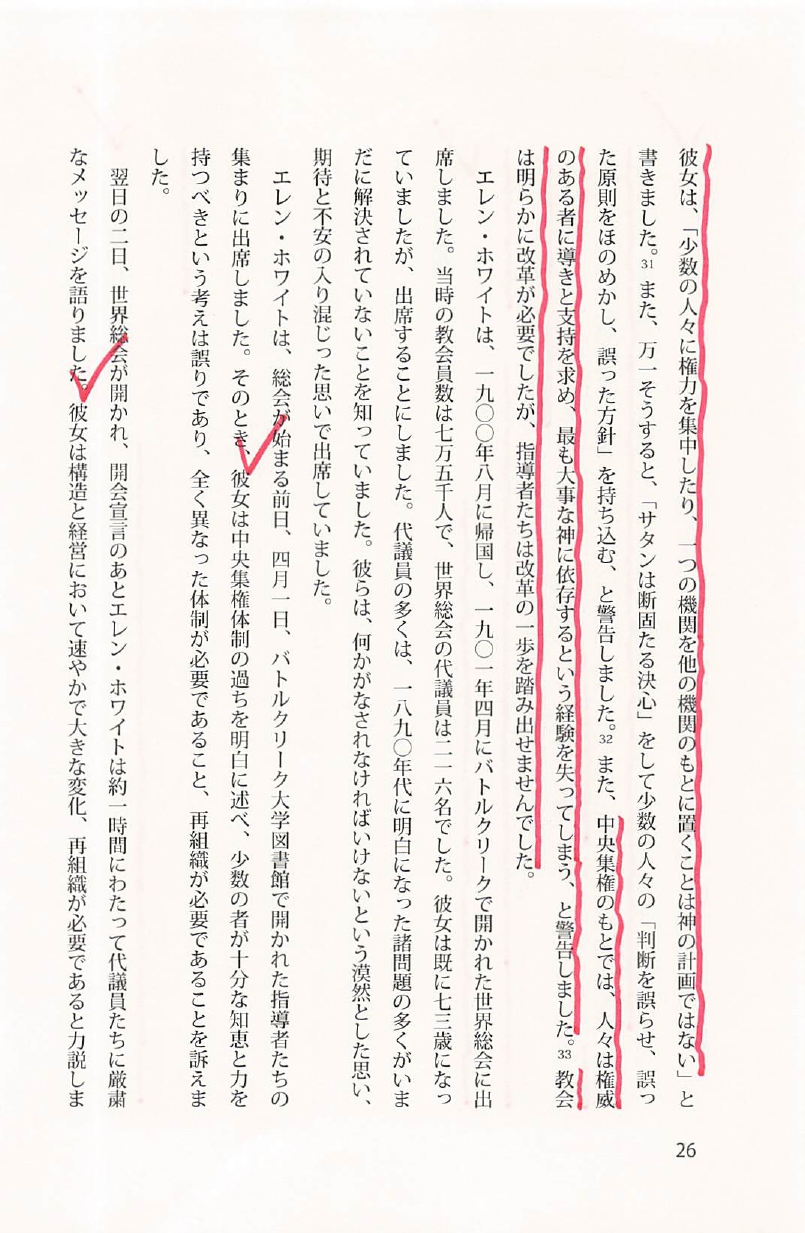 彼女は、「少数の人々に権力を集中したり、一つの機関を他の機関のもとに置くことは神の計画ではない」と
書きました。31 また、万一そうすると、「サタンは断固たる決心」をして少数の人々の「判断を誤らせ、誤っ
た原則をほのめかし、誤った方針」を持ち込む、と警告しました。32 また、中央集権のもとでは、人々は権威
のある者に導きと支持を求め、最も大事な神に依存するという経験を失ってしまう、と警告しました。33 教会
は明らかに改革が必要でしたが、指導者たちは改革の一歩を踏み出せませんでした。
エレン・ホワイトは、一九〇〇年八月に帰国し、一九〇一年四月にバトルクリークで開かれた世界総会に出
席しました。当時の教会員数は七万五千人で、世界総会の代議員は二一六名でした。彼女は既に七三歳になっ
ていましたが、出席することにしました。代議員の多くは、一八九〇年代に明白になった諸問題の多くがいま
だに解決されていないことを知っていました。彼らは、何かがなされなければいけないという漠然とした思い、
期待と不安の入り混じった思いで出席していました。
エレン・ホワイトは、総会が始まる前日、四月一日、バトルクリーク大学図書館で開かれた指導者たちの
集まりに出席しました。そのとき、彼女は中央集権体制の過ちを明白に述べ、少数の者が十分な知恵と力を
持つべきという考えは誤りであり、全く異なった体制が必要であること、再組織が必要であることを訴えま
した。
翌日の二日、世界総会が開かれ、開会宣言のあとエレン・ホワイトは約一時間にわたって代議員たちに厳粛
なメッセージを語りました。彼女は構造と経営において速やかで大きな変化、再組織が必要であると力説しま
26